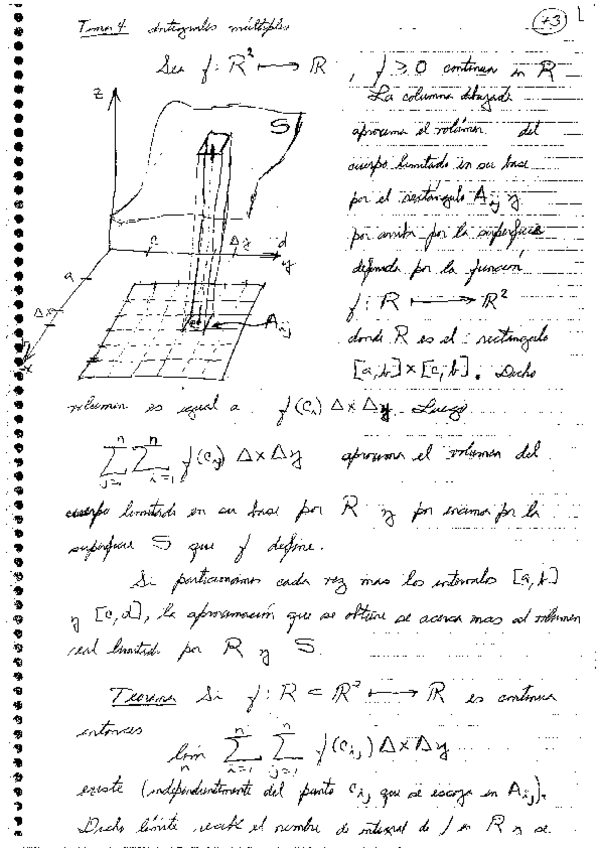 Tema 4 Integrales múltiples 73
Sea f: R² ⟼ R , f ≥ 0 continua en R
La columna dibujada
aproxima el volúmen del
cuerpo limitado en su base
por el rectángulo A_ij y
por arriba por la superficie
definida por la función
f: R ⟼ R²
donde R es el rectangulo
[a,b]×[c,b]. Dicho
z
S
c
Δy
d
y
a
Δx
x
A_ij
volumen es igual a f(c_ij) Δx Δy. Luego
∑_{j=1}^{n} ∑_{i=1}^{n} f(c_ij) Δx Δy aproxima el volumen del
cuerpo limitado en su base por R y por encima por la
superficie S que f define.
Si particionamos cada vez mas los intervalos [a,b]
y [c,d], la aproximación que se obtiene se acerca mas al volumen
real limitado por R y S.
Teorema Si f: R ⊂ R² ⟼ R es continua
entonces
lim_n ∑_{i=1}^{n} ∑_{j=1}^{n} f(c_ij) Δx Δy
existe (independientemente del punto c_ij que se escoja en A_ij).
Dicho límite recibe el nombre de integral de f en R y se